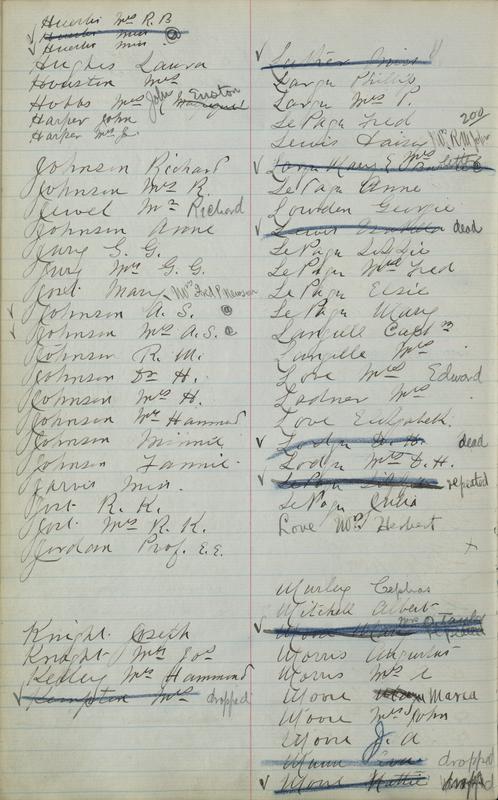 Huestis Mrs R. B
Huestis Miss @
Huestis Miss
Hughes Laura
Houston Mrs
Hobbs Mrs John Euston
Harper John
Harper Mrs J.
Johnson Richard
Johnson Mrs R.
Jewel Mrs Richard
Johnson Anne
Jury G. G.
Jury Mrs G. G.
Jost Mary Mrs
Johnson A. S. @
Johnson Mrs A. S. @
Johnson R. M.
Johnson Dr H.
Johnson Mrs H.
Johnson Mrs Hammond
Johnson Minnie
Johnson Fannie
Jarvis Miss
Jost R. K.
Jost Mrs R. K.
Jordan Prof. E. E.
Knight Joseph
Knight Mrs Jos
Kelley Mrs Hammond
Kempton Mrs dropped
Luther Miss
Large Phillip
Large Mrs P.
LePage Fred
200
Lewis Daisy Mrs R
Mrs
LePage Anne
Lowden Georgie
Lewis dead
LePage Lizzie
LePage Mrs Fred
LePage Elsie
LePage Mary
Langille Capt
Langille Mrs
Love Mrs Edward
Ladner Mrs
Love Elizabeth
Lodge D. H. dead
Lodge Mrs D. H.
LePage repeated
LePage Julia
Love Mrs Herbert
x
Murley Cephas
Mitchell Albert
Moore repeated
Morris Augustus
Morris Mrs A
Moore Maria
Moore Mrs John
Moore J. A
dropped
Moore Hattie dropped